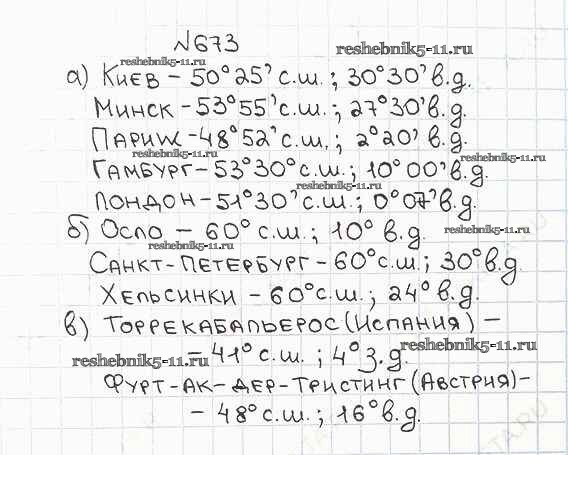 №673
reshebnik5-11.ru
reshebnik5-11.ru
а) Киев – 50°25' с.ш.; 30°30' в.д.
Минск – 53°55' с.ш.; 27°30' в.д.
Париж – 48°52' с.ш.; 2°20' в.д.
reshebnik5-11.ru
reshebnik5-11.ru
Гамбург – 53°30° с.ш.; 10°00' в.д.
reshebnik5-11.ru
Лондон – 51°30' с.ш.; 0°07' в.д.
б) Осло – 60° с.ш.; 10° в.д.
reshebnik5-11.ru
reshebnik5-11.ru
Санкт-Петербург – 60° с.ш.; 30° в.д.
Хельсинки – 60° с.ш.; 24° в.д.
в) Торрекабальерос (Испания) –
– 41° с.ш.; 4° з.д.
reshebnik5-11.ru
reshebnik5-11.ru
Фурт-ак-дер-Тристинг (Австрия) –
– 48° с.ш.; 16° в.д.